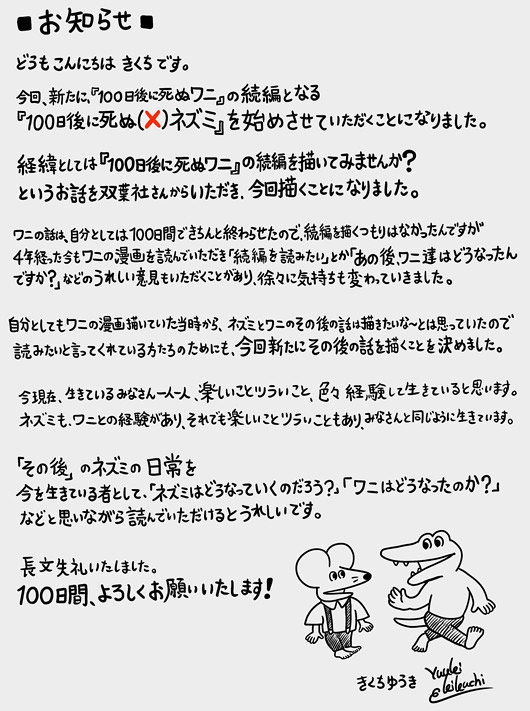 ■お知らせ■
どうもこんにちは きくちです。
今回、新たに、『100日後に死ぬワニ』の続編となる
『100日後に死ぬ(×)ネズミ』を始めさせていただくことになりました。
経緯としては『100日後に死ぬワニ』の続編を描いてみませんか?
というお話を双葉社さんからいただき、今回描くことになりました。
ワニの話は、自分としては100日間できちんと終わらせたので、続編を描くつもりはなかったんですが
4年経った今もワニの漫画を読んでいただき「続編を読みたい」とか「あの後、ワニ達はどうなったん
ですか?」などのうれしい意見もいただくことがあり、徐々に気持ちも変わっていきました。
自分としてもワニの漫画描いていた当時から、ネズミとワニのその後の話は描きたいな〜とは思っていたので
読みたいと言ってくれている方たちのためにも、今回新たにその後の話を描くことを決めました。
今現在、生きているみなさん一人一人、楽しいことツラいこと、色々経験して生きていると思います。
ネズミも、ワニとの経験があり、それでも楽しいことツラいこともあり、みなさんと同じように生きています。
「その後」のネズミの日常を
今を生きている者として、「ネズミはどうなっていくのだろう?」「ワニはどうなったのか?」
などと思いながら読んでいただけるとうれしいです。
長文失礼いたしました。
100日間、よろしくお願いいたします!
きくちゆうき Yuuki Kikuchi